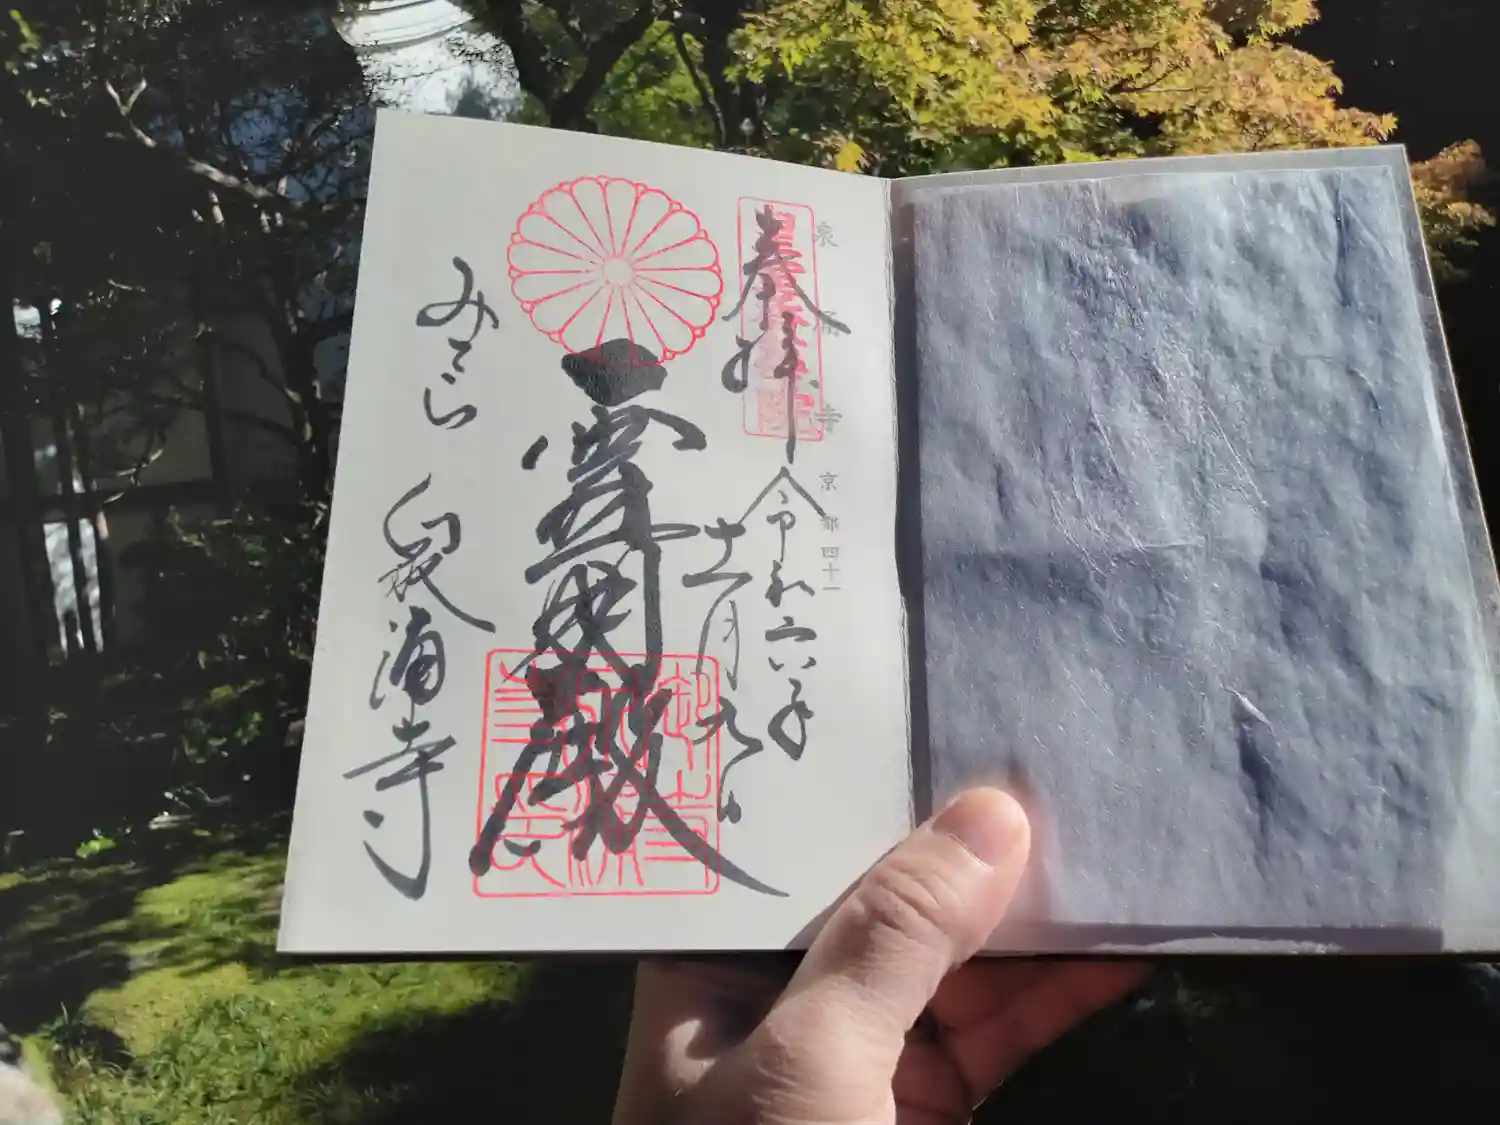 泉涌寺 京都四十一
奉拝 令和六年
十一月九日
霊明殿
みてら 泉涌寺